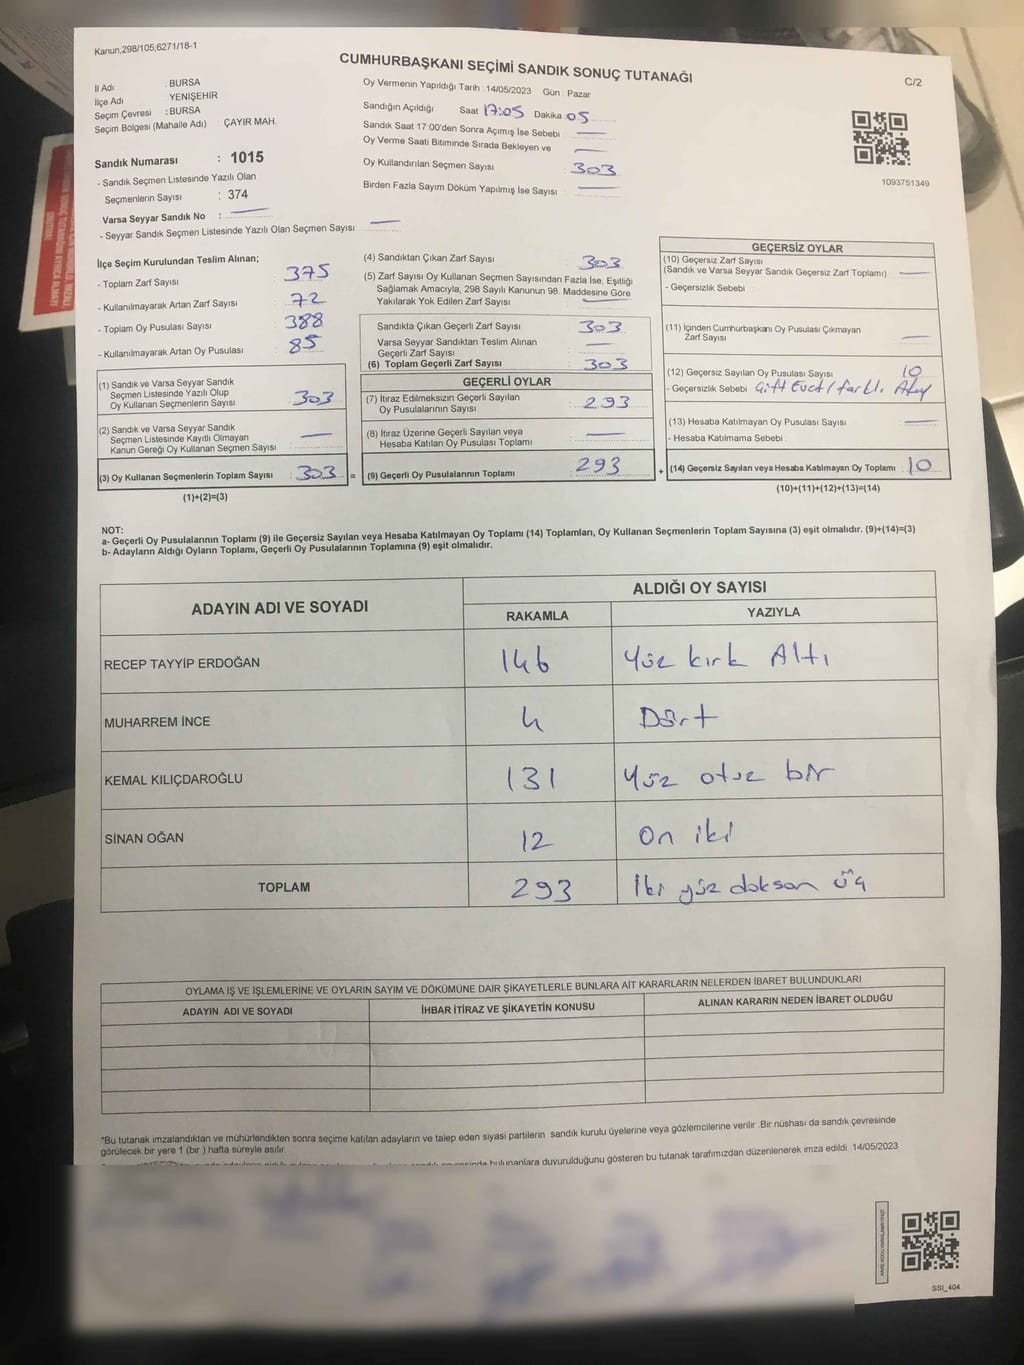 Kanun,298/105,6271/18-1
CUMHURBAŞKANI SEÇİMİ SANDIK SONUÇ TUTANAĞI
C/2
İl Adı : BURSA
İlçe Adı YENİŞEHİR
Seçim Çevresi : BURSA
Seçim Bölgesi (Mahalle Adı) : ÇAYIR MAH.
Sandık Numarası : 1015
- Sandık Seçmen Listesinde Yazılı Olan
Seçmenlerin Sayısı : 374
Varsa Seyyar Sandık No :
- Seyyar Sandık Seçmen Listesinde Yazılı Olan Seçmen Sayısı:
Oy Vermenin Yapıldığı Tarih : 14/05/2023 Gün : Pazar
Sandığın Açıldığı Saat 17:05 Dakika 05
Sandık Saat 17:00'den Sonra Açımış İse Sebebi
Oy Verme Saati Bitiminde Sırada Bekleyen ve
Oy Kullandırılan Seçmen Sayısı : 303
Birden Fazla Sayım Döküm Yapılmış İse Sayısı :
1093751349
İlçe Seçim Kurulundan Teslim Alınan;
- Toplam Zarf Sayısı : 375
- Kullanılmayarak Artan Zarf Sayısı : 72
- Toplam Oy Pusulası Sayısı : 388
- Kullanılmayarak Artan Oy Pusulası : 85
(1) Sandık ve Varsa Seyyar Sandık
Seçmen Listesinde Yazılı Olup
Oy Kullanan Seçmenlerin Sayısı : 303
(2) Sandık ve Varsa Seyyar Sandık
Seçmen Listesinde Kayıtlı Olmayan
Kanun Gereği Oy Kullanan Seçmen Sayısı :
(3) Oy Kullanan Seçmenlerin Toplam Sayısı : 303 =
(1)+(2)=(3)
(4) Sandıktan Çıkan Zarf Sayısı : 303
(5) Zarf Sayısı Oy Kullanan Seçmen Sayısından Fazla İse, Eşitliği
Sağlamak Amacıyla, 298 Sayılı Kanunun 98. Maddesine Göre
Yakılarak Yok Edilen Zarf Sayısı :
Sandıkta Çıkan Geçerli Zarf Sayısı : 303
Varsa Seyyar Sandıktan Teslim Alınan
Geçerli Zarf Sayısı :
(6) Toplam Geçerli Zarf Sayısı : 303
GEÇERLİ OYLAR
(7) İtiraz Edilmeksizin Geçerli Sayılan
Oy Pusulalarının Sayısı : 293
(8) İtiraz Üzerine Geçerli Sayılan veya
Hesaba Katılan Oy Pusulası Toplamı :
(9) Geçerli Oy Pusulalarının Toplamı : 293 +
GEÇERSİZ OYLAR
(10) Geçersiz Zarf Sayısı
(Sandık ve Varsa Seyyar Sandık Geçersiz Zarf Toplamı) :
- Geçersizlik Sebebi :
(11) İçinden Cumhurbaşkanı Oy Pusulası Çıkmayan
Zarf Sayısı :
(12) Geçersiz Sayılan Oy Pusulası Sayısı : 10
- Geçersizlik Sebebi Çift Evet / farklı
(13) Hesaba Katılmayan Oy Pusulası Sayısı :
- Hesaba Katılmama Sebebi :
(14) Geçersiz Sayılan veya Hesaba Katılmayan Oy Toplamı : 10
(10)+(11)+(12)+(13)=(14)
NOT:
a- Geçerli Oy Pusulalarının Toplamı (9) ile Geçersiz Sayılan veya Hesaba Katılmayan Oy Toplamı (14) Toplamları, Oy Kullanan Seçmenlerin Toplam Sayısına (3) eşit olmalıdır. (9)+(14)=(3)
b- Adayların Aldığı Oyların Toplamı, Geçerli Oy Pusulalarının Toplamına (9) eşit olmalıdır.
ADAYIN ADI VE SOYADI
ALDIĞI OY SAYISI
RAKAMLA YAZIYLA
RECEP TAYYİP ERDOĞAN 146 Yüz kırk Altı
MUHARREM İNCE 4 Dört
KEMAL KILIÇDAROĞLU 131 Yüz otuz bir
SİNAN OĞAN 12 On iki
TOPLAM 293 İki yüz doksan üç
OYLAMA İŞ VE İŞLEMLERİNE VE OYLARIN SAYIM VE DÖKÜMÜNE DAİR ŞİKAYETLERLE BUNLARA AİT KARARLARIN NELERDEN İBARET BULUNDUKLARI
ADAYIN ADI VE SOYADI İHBAR İTİRAZ VE ŞİKAYETİN KONUSU ALINAN KARARIN NEDEN İBARET OLDUĞU
*Bu tutanak imzalandıktan ve mühürlendikten sonra seçime katılan adayların ve talep eden siyasi partilerin sandık kurulu üyelerine veya gözlemcilerine verilir. Bir nüshası da sandık çevresinde
görülecek bir yere 1 (bir ) hafta süreyle asılır.
bulunanlara duyurulduğunu gösteren bu tutanak tarafımızdan düzenlenerek imza edildi. 14/05/2023
SSI_404